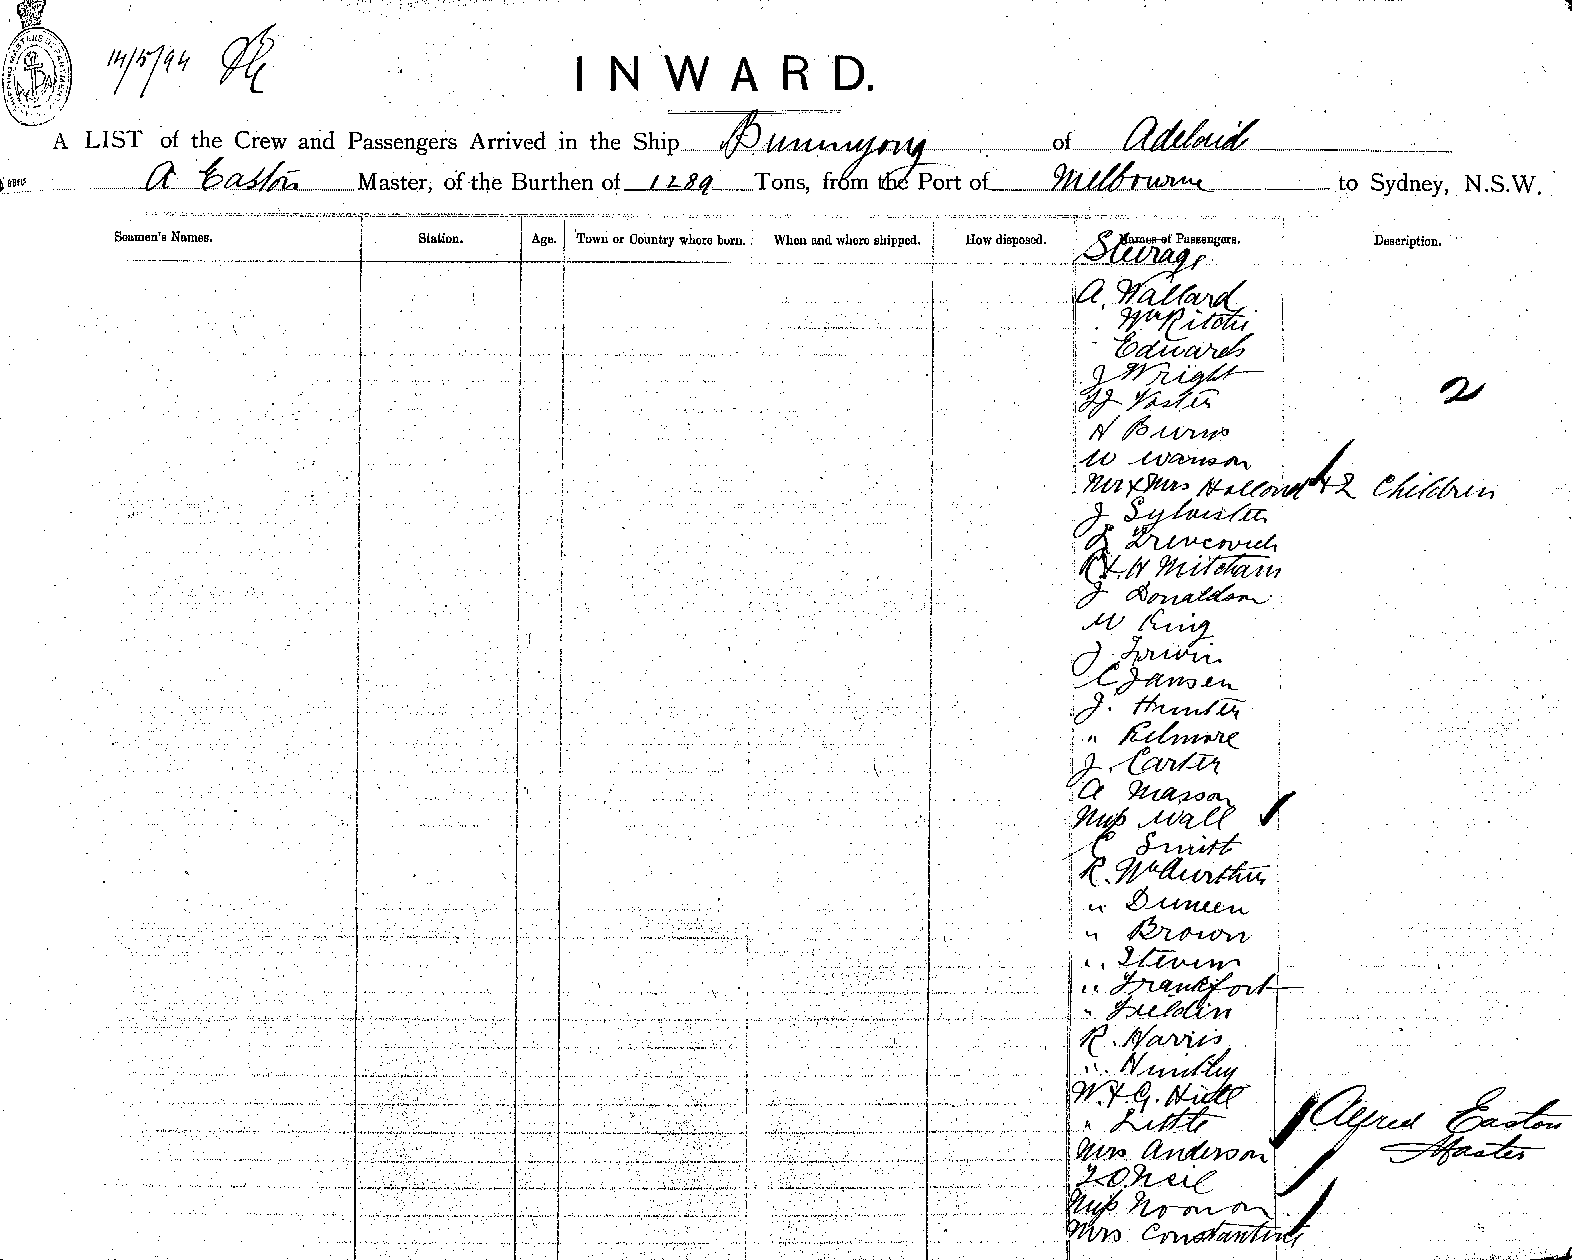 14/5/94
INWARD.
A LIST of the Crew and Passengers Arrived in the Ship Buninyong of Adelaid
A Easton Master, of the Burthen of 1289 Tons, from the Port of Melbourne to Sydney, N.S.W.
Seamen's Names. Station. Age. Town or Country where born. When and where shipped. How disposed. Names of Passengers. Description.
Steerage
A. Wallard
" McRitchi
" Edwards
J Wright
Foster
2
H Burns
W Wanson
Mr & Mrs Holland & 2 Children
J Sylvister
R & H Mitcham
J Donaldson
W King
J. Irwin
C Jansen
J. Hunter
" Kilmore
J. Carter
A Masson
Miss Wall
C Smith
R. McAurthur
" Duncen
" Brown
" Stevens
" Frankfort
" Fieldin
R. Harris
" Huntley
W. & G. Hill
" Little
Alfred Easton
Mrs Anderson
Master
O'Neil
Miss Noonan
Mrs Constantine